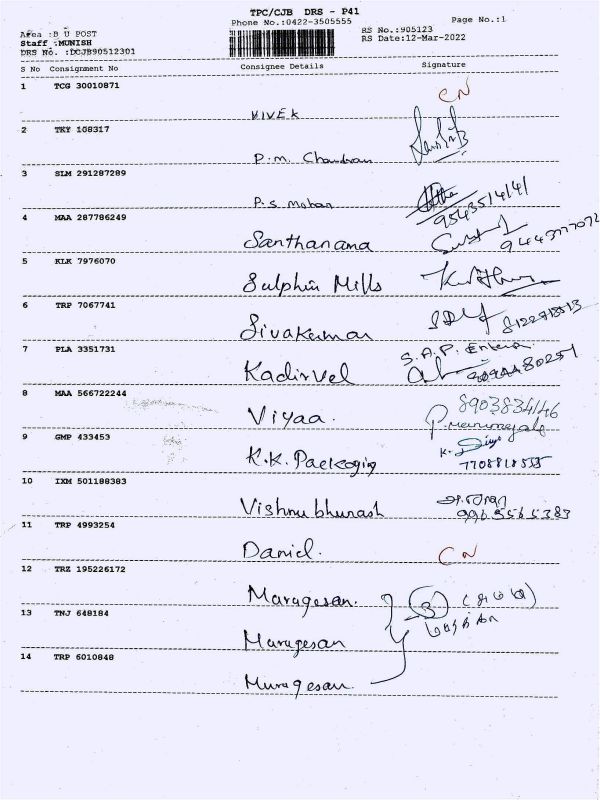 TPC/CJB DRS - P41
Phone No.:0422-3505555
Page No.:1
Area :B U POST
RS No.:905123
Staff :MUNISH
RS Date:12-Mar-2022
DRS No. :DCJB90512301
S No Consignment No Consignee Details Signature
1 TCG 30010871 CN
VIVEK
2 TKY 168317
P.M. Chandran
3 SLM 291287289
P.S. Mohan
9543514141
4 MAA 287786249
Santhanama
5 KLK 7976070
Sulphin Mills
6 TRP 7067741
Sivakumar
7 PLA 3351731 S.A.P.
Kadirvel
8 MAA 566722244 8903834146
Viyaa.
9 GMP 433453
K.K. Packoging 7708818555
10 IXM 501188383
Vishnu bhurash 9965565383
11 TRP 4993254
Daniel. CN
12 TRZ 195226172
Maragesan.
13 TNJ 648184
Maragesan
14 TRP 6010848
Muragesan